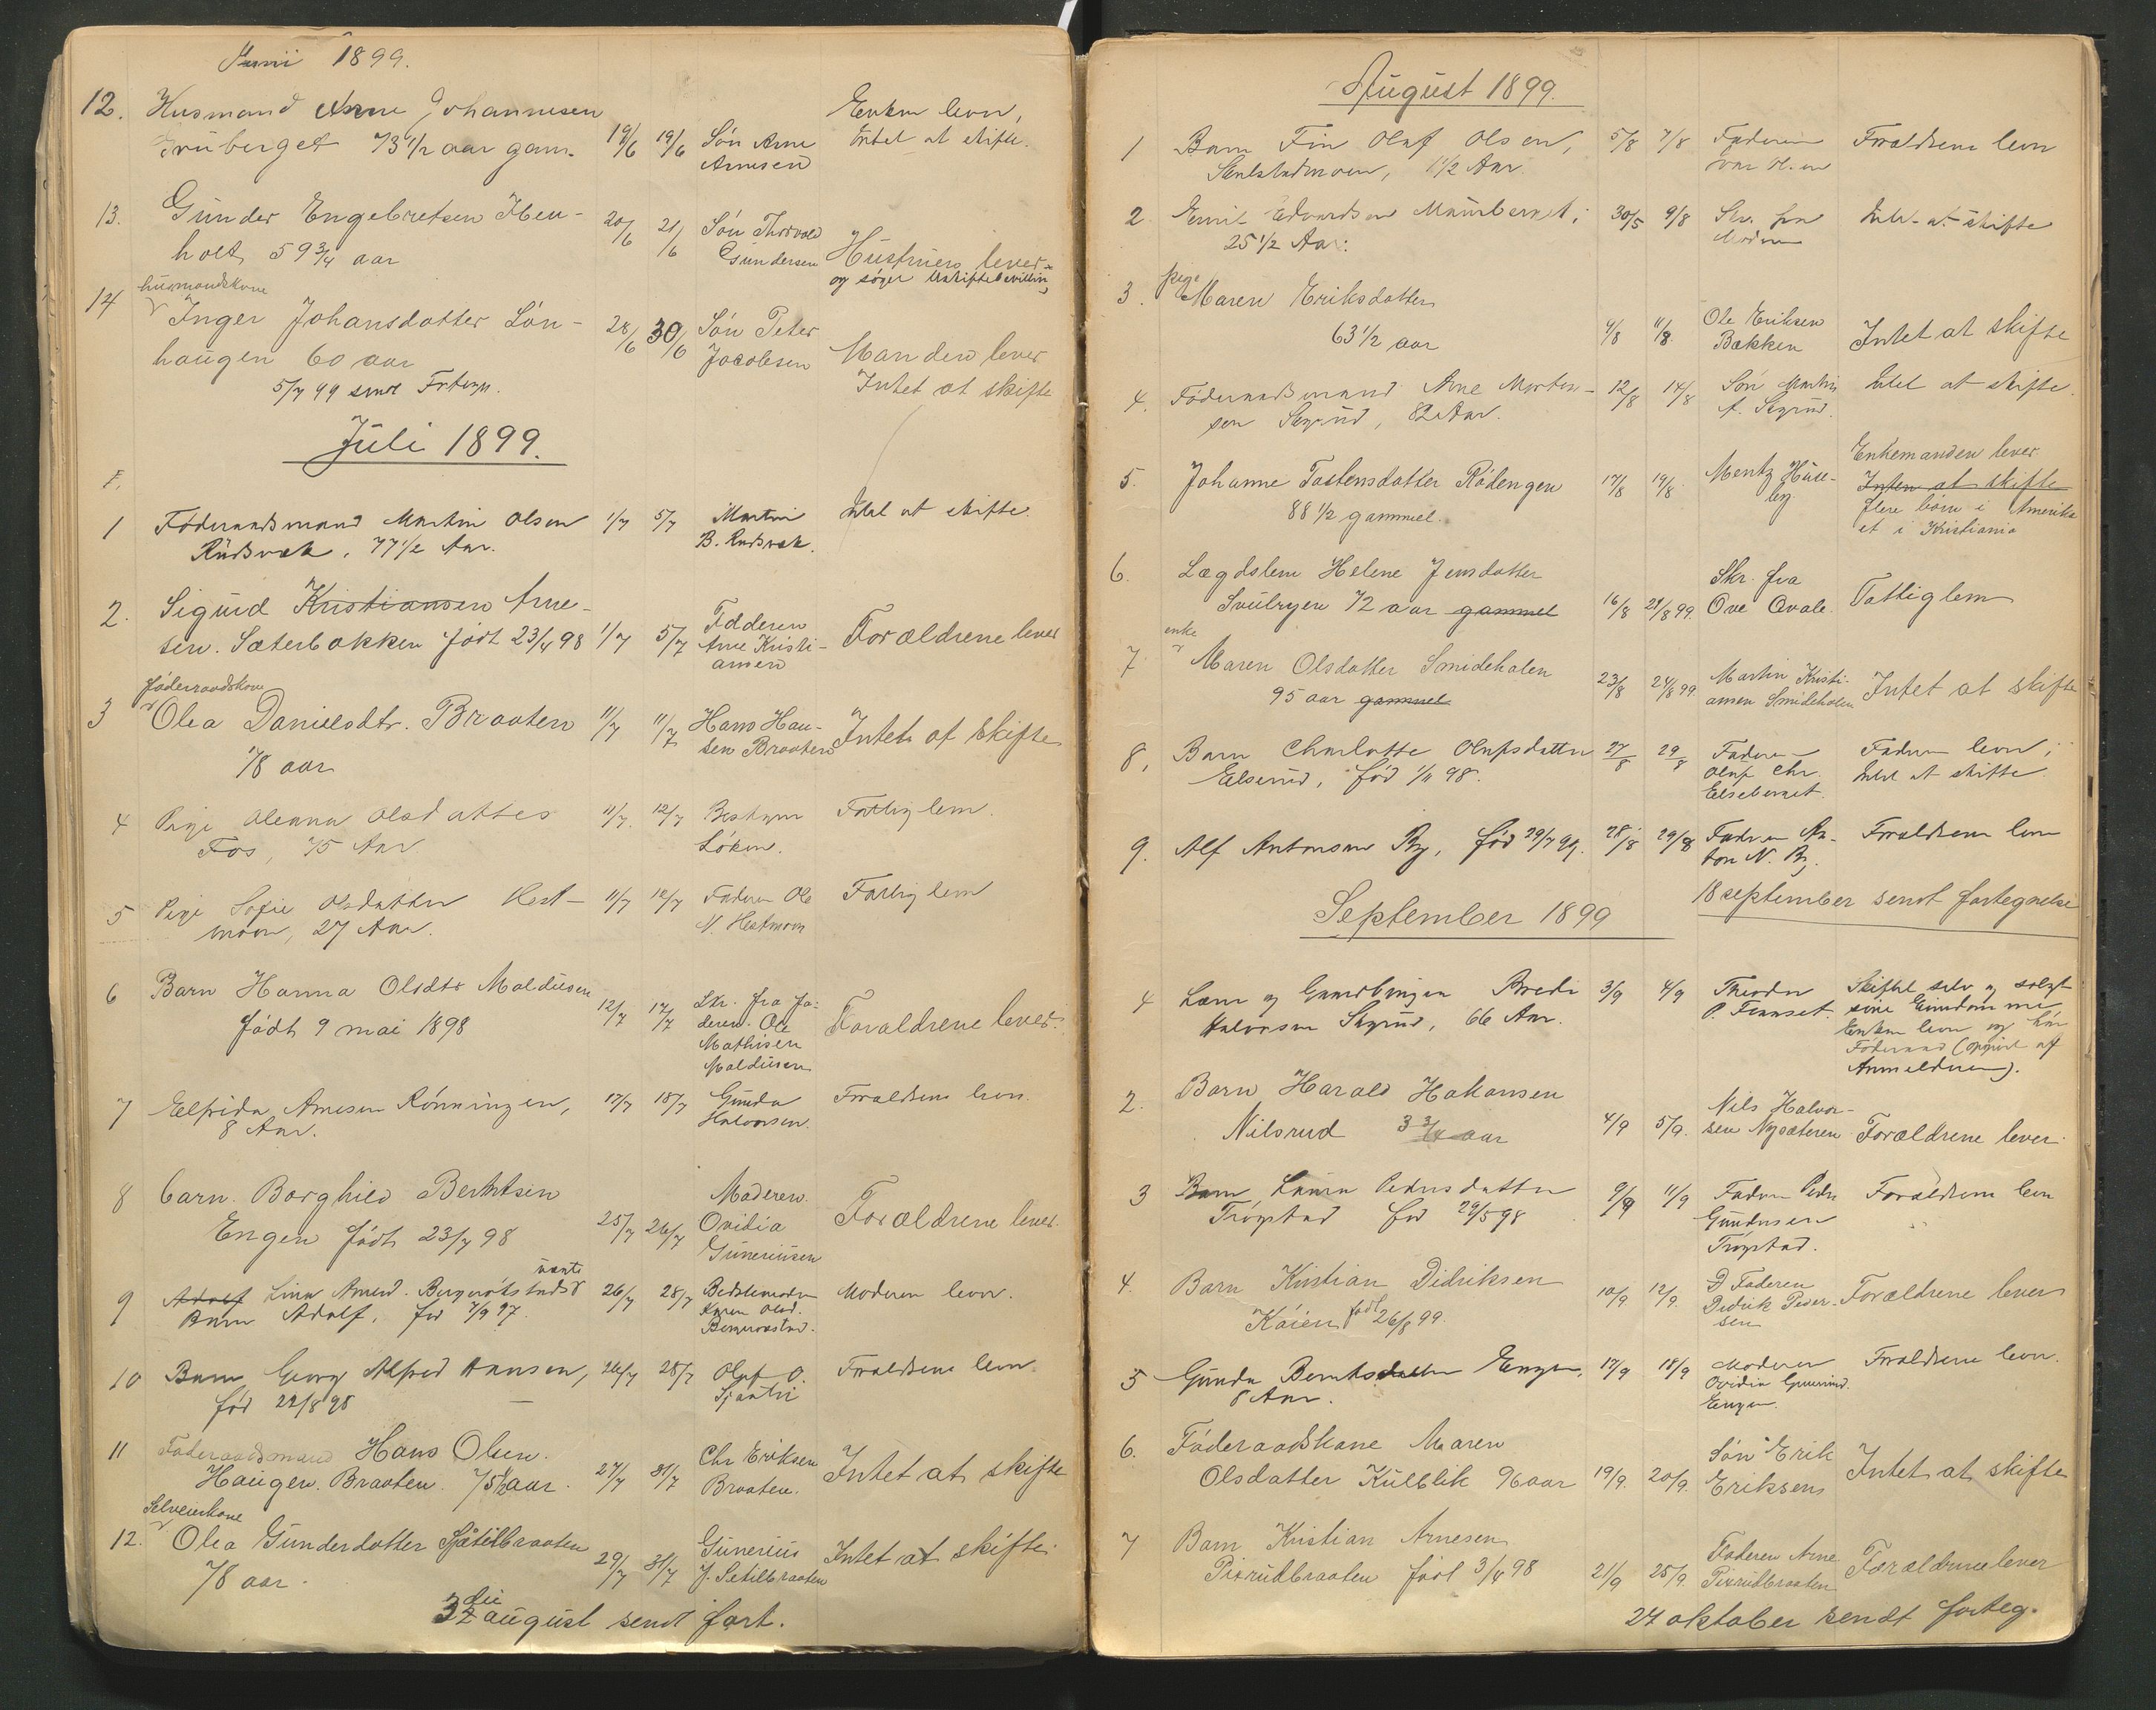 Juni 1899.
12. Husmand Arne Johannesen 19/6 19/6 Søn Arne Enken lever,
73 1/2 aar gam. Arnesen Intet at skifte.
13. Gunder Engebretsen Iben- 20/6 21/6 Søn Thorvald
holt 59 3/4 aar Gundersen Hustruen lever
og søger Uskiftebevilling
husmandskone
14 Inger Johansdatter Løn- 28/6 30/6 Søn Peter
haugen 60 aar Jacobsen Manden lever
5/7 99 sendt Fortegn. Intet at skifte
Juli 1899.
1 Føderaadsmand Martin Olsen 1/7 5/7 Martin Intet at skifte.
Rudsvak, 77 1/2 Aar. B. Rudsvak.
2. Sigurd Kristiansen Arne- 1/7 5/7 Faderen Forældrene lever
sen. Sæterbakken født 23/4 98 Arne Kristi-
ansen
føderaadskone
3 Olea Danielsdtr. Braaten 11/7 11/7 Hans Han- Intet at skifte
78 aar sen Braaten
4 Pige Oleana Olsdatter 11/7. 12/7 Bestyrer Fattiglem.
Fos, 75 Aar Løken.
5 Pige Sofie Olsdatter Hest- 11/7 12/7 Faderen Ole Fattiglem
moen, 27 Aar. N. Hestmoen
6 Barn Hanna Olsdtr Moldusen 12/7 17/7 Skr. fra Fa-
født 9 mai 1898 deren Ole Forældrene lever.
Mathisen
Moldusen
7 Elfrida Arnesen Rønningen, 17/7 18/7 Gunda Forældrene lever.
8 Aar. Halvorsen.
8 barn Borghild Berntsen Moderen
Engen født 23/7 98 25/7 26/7 Ovidia Forældrene lever.
Guneriusen
uægte
9 Adolf Lina Amund. Bergerökstads 26/7 28/7 Bedstemoder Moderen lever.
Barn Adolf, fød 7/9 97. Karen Olsd.
10 Barn Georg Alfred Hansen, 26/7 28/7 Olaf O. Forældrene lever.
fød 22/8 98
11 Føderaadsmand Hans Olsen. Chr Eriksen Intet at skifte
Haugen. Braaten. 75 1/2 aar. 27/7 31/7 Braaten.
Selveierkone
12. Olea Gunderdatter Sjøtilbraaten Gunerius Intet at skifte.
78 aar. 29/7 31/7 J. Setilbraaten
3die august sendt fort.
August 1899.
1 Barn Fin Olaf Olsen, 5/8 7/8 Faderen Forældrene lever
1 1/2 Aar
2 Emil Edvardsen 30/5 9/8 Skr. fra Intet at skifte
25 1/2 Aar. Moderen
pige
3. Maren Eriksdatter Ole Eriksen
63 1/2 aar 9/8 11/8. Bakken Intet at skifte
4. Føderaadsmand Arne Morten- 12/8 14/8 Søn Martin Intet at skifte.
sen Skyrud, 82 Aar. A. Skyrud.
5. Johanne Tostensdatter Rødengen 17/8 19/8 Mentz Huse- Enkemanden lever
88 1/2 gammel. by. Inten at skifte
flere børn i Amerika
et i Kristiania
6. Lægdslem Helene Jensdatter Skr. fra
Svulryen 72 aar gammel 16/8 21/8 99. Ove Qvale. Fattiglem
enke
7 Maren Olsdatter Smideholen 23/8 24/8 99 Martin Kristi- Intet at skifte
95 aar gammel ansen Smideholen
8. Barn Charlotte Olafsdatter 27/8 29/8 Faderen Faderen lever;
Elserud, fød 1/11 98. Olaf Chr. Intet at skifte
Elseberget.
9. Alf Antonsen By, fød 29/7 99. 28/8 29/8 Faderen An- Forældrene lever
ton N. By.
18 september sendt fortegnelse
September 1899
Halvorsen Skyrud, 66 Aar. 3/9 4/9 Theodor Skiftet selv og solgt
P. Finnset. sine Eiendomme
Enken lever og har
Føderaad (opgivet af
Anmelderen).
2. Barn Harald Hakansen Nils Halvor-
Nilsrud 3 3/4 aar 4/9 5/9. sen Nysæteren Forældrene lever.
3 Barn Laura Pedersdatter 9/9 11/9 Faderen Peder Forældrene lever
Trøgstad fød 29/5 98 Gundersen
Trøgstad.
4. Barn Kristian Didriksen Faderen
Kåien født 26/8 99. 10/9. 12/9. Didrik Peder- Forældrene lever
sen
5 Gunda Berntsdatter Engen, 17/9 18/9 Moderen Forældrene lever.
8 Aar. Ovidia Guneriusd.
Engen.
6. Føderaadskone Maren Søn Erik
Olsdatter Kulblik 96 aar 19/9. 20/9. Eriksen Intet at skifte
7 Barn Kristian Arnesen Faderen Arne
Pixrudbraaten født 3/4 98 21/9 25/9. Pixrudbraaten Forældrene lever
24 oktober sendt forteg.